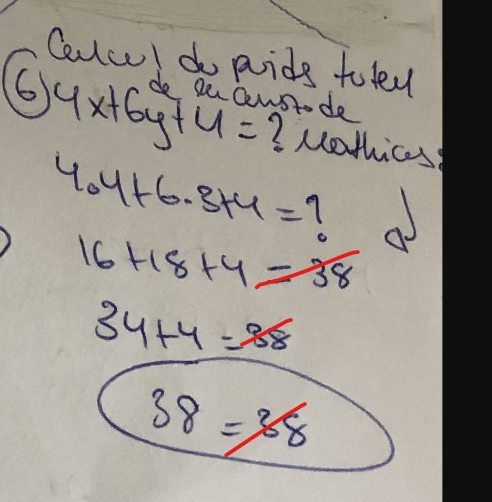 Calcul du poids total
de
6 4x+6y+4 = ? Mathias:
4.4+6.3+4 = ?
16+18+4 = 38
34+4 = 38
38 = 38